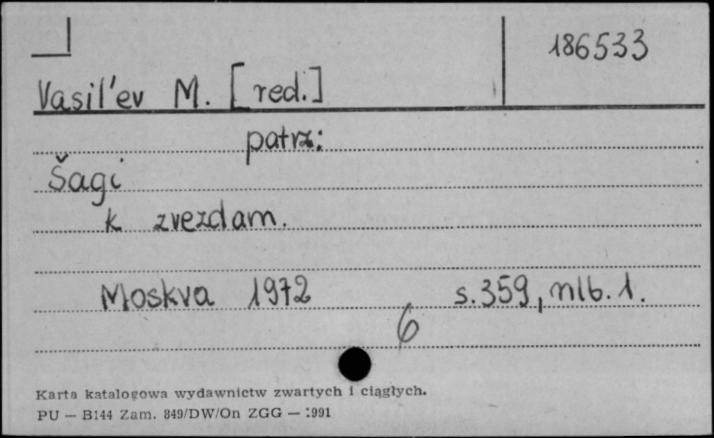 186533
Vasil'ev M. [red.]
patrz:
Šagi
k zvezdam.
Moskva 1972 s. 359, nlb. 1.
6
Karta katalogowa wydawnictw zwartych i ciągłych.
PU — B144 Zam. 849/DW/On ZGG — 1991